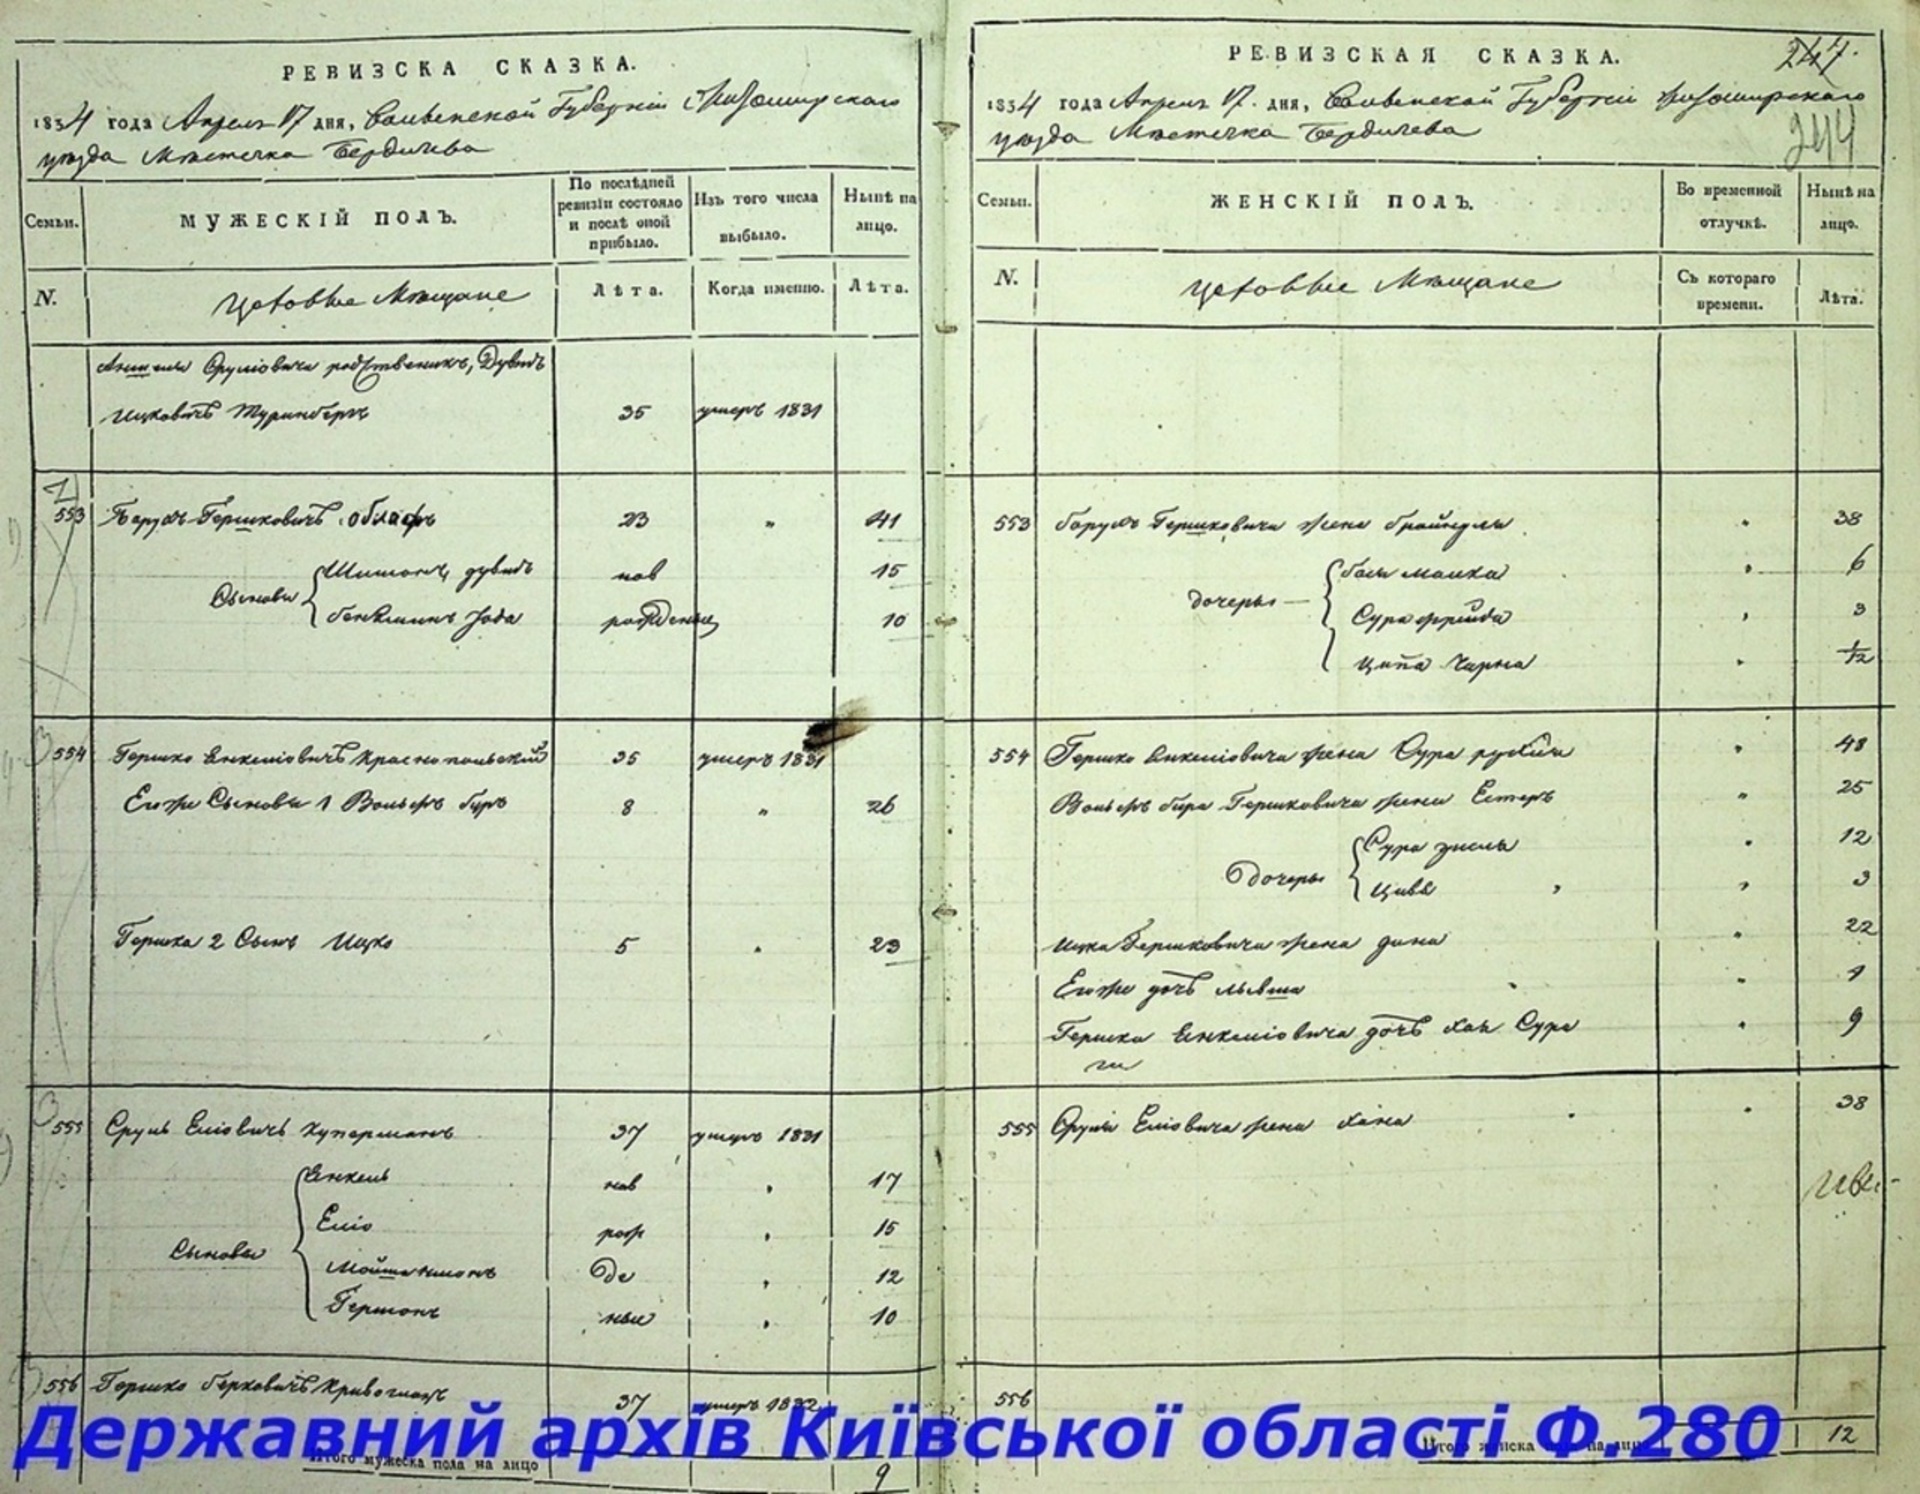 РЕВИЗСКА СКАЗКА.
1834 года Апреля 17 дня, Волынской Губернии Житомирского
уезда Местечка Бердичева
Семьи.
МУЖЕСКІЙ ПОЛЪ.
По послѣдней ревизіи состояло и послѣ оной прибыло.
Изъ того числа выбыло.
Нынѣ на лицо.
N.
Цеховые Мещане
Лѣта.
Когда именно.
Лѣта.
родственникъ, Дувидъ
Ицковичъ 35 умеръ 1831
553 Борухъ Гершковичъ 23 " 41
Сыновья Шимонъ, дувидъ нов 15
рожденные 10
554 Гершко Енкелiовичъ Краснопольский 35 умеръ 1831
Егоже Сыновья 1 Вольфъ Буръ 8 " 26
Гершка 2 Сынъ Ицко 5 " 23
555 Сруль Елiовичъ Куперманъ 37 умеръ 1831
Енкель нов " 17
Сыновья Елiо рож " 15
де " 12
Гершонъ ные " 10
556 Гершко Берковичъ 37 умеръ 1832
Итого мужеска пола на лицо 9
РЕВИЗСКАЯ СКАЗКА.
247.
1834 года Апреля 17. дня, Волынской Губернии Житомирского
уезда Местечка Бердичева
244
Семьи.
ЖЕНСКІЙ ПОЛЪ.
Во временной отлучкѣ.
Нынѣ на лицо.
N.
Цеховые Мещане
Съ котораго времени.
Лѣта.
553 Борухъ Гершковича жена Брайндля " 38
бася малка " 6
дочеры Сура фрейда " 3
Ципа Чарна " 1/12
554 Гершко Енкелiовича жена Сура рухля " 48
Вольфъ бира Гершковича жена Естеръ " 25
Сура " 12
Дочеры Цивя " 3
Ицка Гершковича жена дина " 22
Егоже дочъ " 1
Гершка Енкелiовича дочъ хая Сура " 9
555 Сруля Елiовича жена хана " 38
556
Итого женска пола на лицо 12
Державний архів Київської області Ф.280